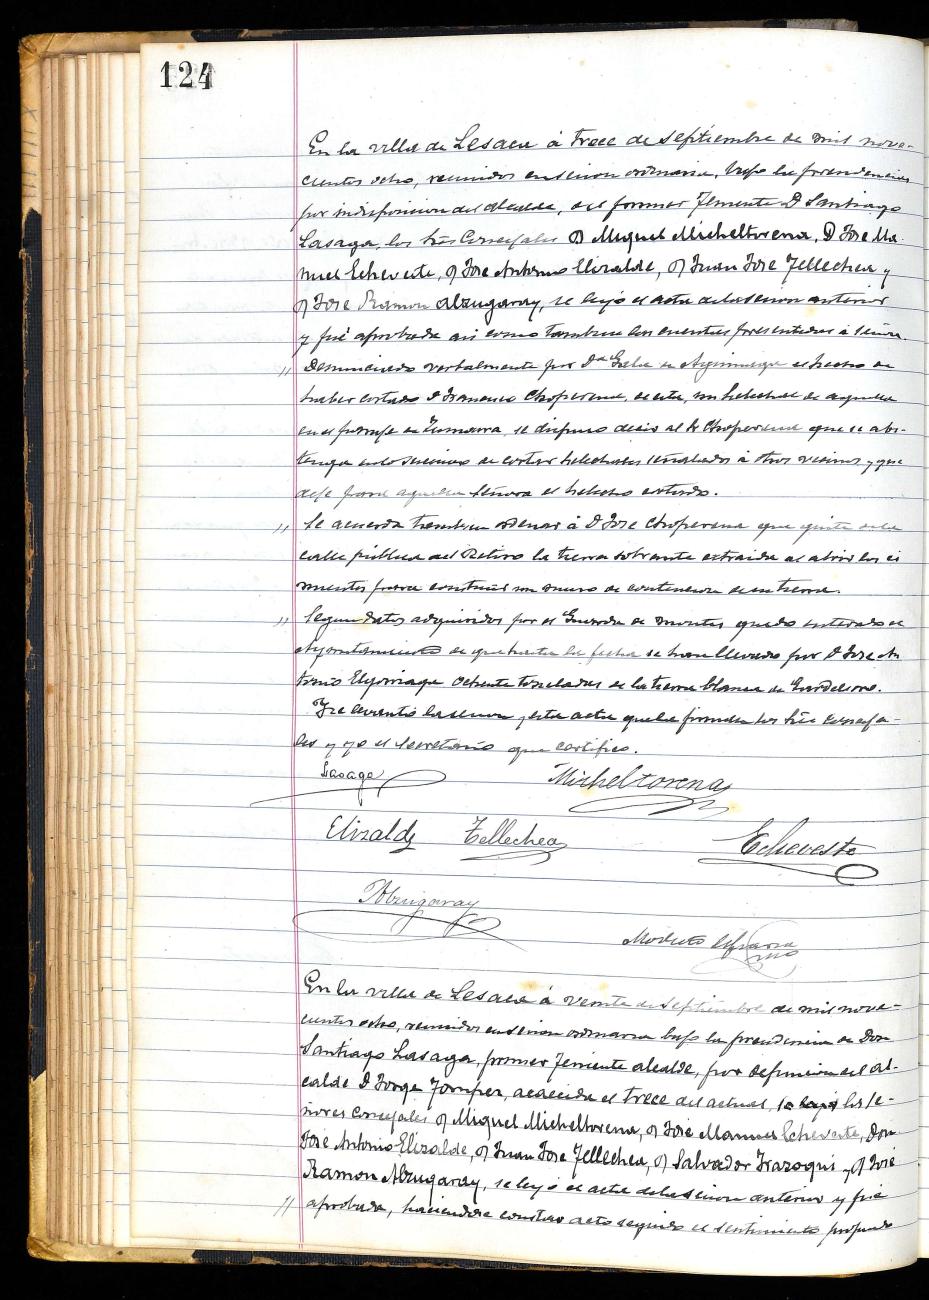 124
En la villa de Lesaca á trece de septiembre de mil nove-
cientos ocho, reunidos en sesion ordinaria, bajo la presidencia
por indisposicion del alcalde, del primer Teniente D Santiago
Lasaga, los Sres Concejales D Miguel Micheltorena, D José Ma-
nuel Echeveste, D José Antonio Elizalde, D Juan José Tellechea y
D José Ramon Alzugaray, se leyó el acta de la sesion anterior
y fué aprobada asi como tambien las cuentas presentadas á
" Denunciado verbalmente por Dª de el hecho de
haber cortado D Francisco Choperena, de esta, un helechal de aquella
en el paraje de se dispuso decir al Sr Choperena que se abs-
tenga en lo sucesivo de cortar helechales señalados á otros vecinos, y que
deje para aquella señora el helecho cortado.
" Se acuerda tambien ordenar á D José Choperena que quite de la
calle pública del Retiro la tierra sobrante extraida al abrir los ci
mientos para construir un muro de contencion de su tierra.
" Segun datos adquiridos por el Guarda de montes quedó enterado el
Ayuntamiento de que hasta la fecha se han llevado por D José An
tonio Elgorriaga ochenta toneladas de la tierra blanca de
Y se levantó la sesion y esta acta que la firman los Sres conceja-
les y yo el Secretario que certifico.
Lasaga Micheltorena
Elizalde Tellechea Echeveste
Alzugaray
Modesto
En la villa de Lesaca á veinte de septiembre de mil nove-
cientos ocho, reunidos en sesion ordinaria bajo la presidencia de Don
Santiago Lasaga, primer Teniente alcalde, por defuncion del al-
calde D Jorge acaecida el trece del actual, los se-
ñores concejales D Miguel Micheltorena, D José Manuel Echeveste, Don
José Antonio Elizalde, D Juan José Tellechea, D Salvador Irazoqui y D José
Ramon Alzugaray, se leyó el acta de la sesion anterior y fué
" aprobada, haciendose constar acto seguido el sentimiento profundo